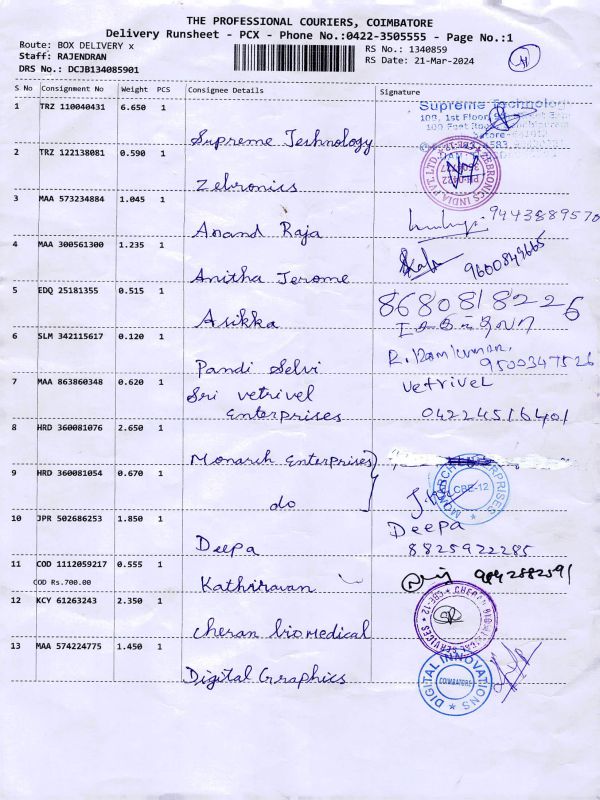 THE PROFESSIONAL COURIERS, COIMBATORE
Delivery Runsheet - PCX - Phone No.:0422-3505555 - Page No.:1
Route: BOX DELIVERY x
RS No.: 1340859
Staff: RAJENDRAN
RS Date: 21-Mar-2024
DRS No.: DCJB134085901
S No Consignment No Weight PCS Consignee Details Signature
1 TRZ 110040431 6.650 1
Supreme Technology
Supreme Technology
2 TRZ 122138081 0.590 1
Zebronics
ZEBRONICS INDIA PVT. LTD.
3 MAA 573234884 1.045 1
Anand Raja
4 MAA 300561300 1.235 1
Anitha Jerome
9600849665
5 EDQ 25181355 0.515 1
Asikka
8680818226
6 SLM 342115617 0.120 1
Pandi Selvi
R. Ramkumar,
9500347526
7 MAA 863860348 0.620 1
Sri vetrivel
Enterprises
vetrivel
04224516401
8 HRD 360081076 2.650 1
Monarch Enterprises
9 HRD 360081054 0.670 1
do
MONARCH ENTERPRISES
CBE-12
10 JPR 502686253 1.850 1
Deepa
Deepa
8825922285
11 COD 1112059217 0.555 1
COD Rs.700.00
Kathiravan
12 KCY 61263243 2.350 1
Cheran biomedical
CHERAN BIOMEDICAL SERVICES
CBE-12
13 MAA 574224775 1.450 1
Digital Graphics
DIGITAL INNOVATIONS
COIMBATORE